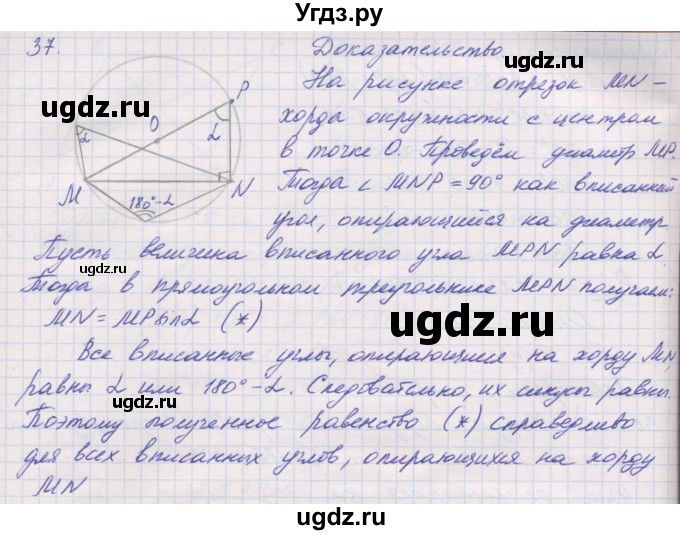 Угдз.ру
37. Доказательство
На рисунке отрезок MN –
хорда окружности с центром
в точке O. Проведём диаметр MP.
Тогда ∠ MNP = 90° как вписанный
угол, опирающийся на диаметр.
Пусть величина вписанного угла MPN равна α.
Тогда в прямоугольном треугольнике MPN получаем:
MN = MP sin α (*)
Все вписанные углы, опирающиеся на хорду MN,
равны α или 180° - α. Следовательно, их синусы равны.
Поэтому полученное равенство (*) справедливо
для всех вписанных углов, опирающихся на хорду
MN
P
O
α
α
M
N
180° - α
ugdz.ru
ugdz.ru
ugdz.ru
ugdz.ru
ugdz.ru
ugdz.ru
ugdz.ru
ugdz.ru
ugdz.ru